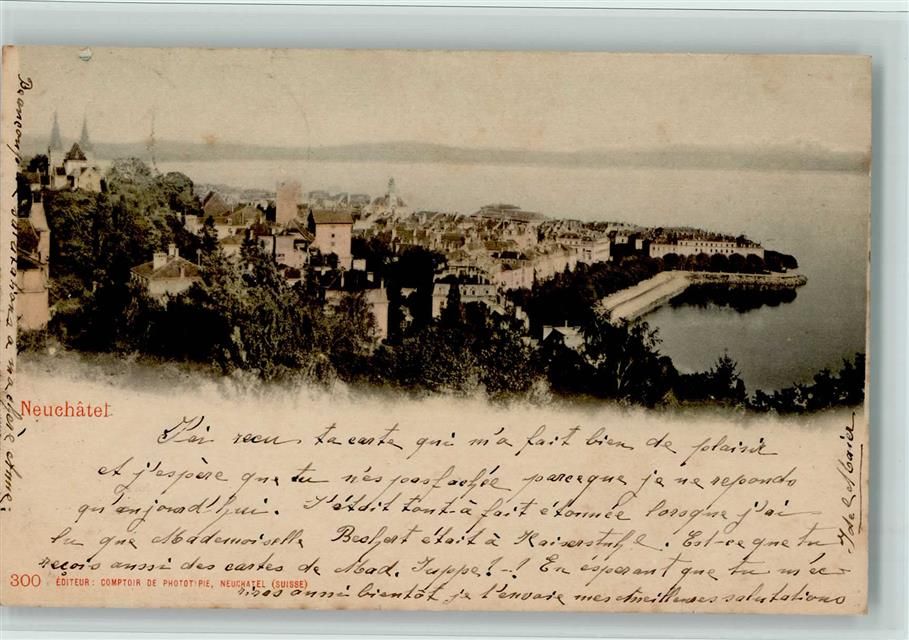 Neuchâtel
J'ai recu ta carte qui m'a fait bien de plaisir
et j'espère que tu n'es pas fachée parceque je ne reponds
qu'aujourd'hui. J'étéit tout-à-fait étonnée lorsque j'ai
lu que Mademoiselle était à Kaiserstuhl. Est-ce que tu
reçois aussi des cartes de Mad. Suppe?-! En esperant que tu m'éc-
riras aussi bientôt je t'envoie mes meilleures salutations
300 ÉDITEUR: COMPTOIR DE PHOTOTYPIE, NEUCHATEL (SUISSE)
Maier
salutations a ma chère amie